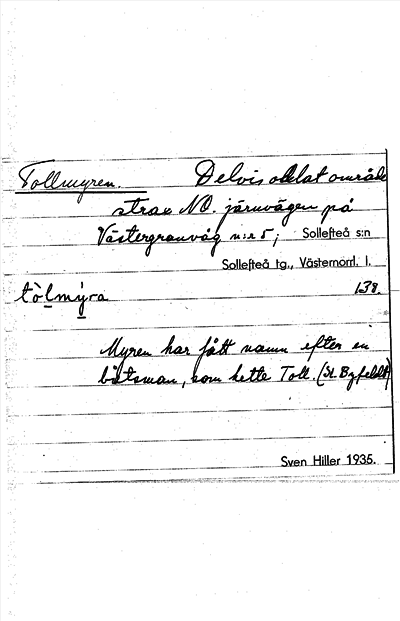 Tollmyren. Delvis odlat område
strax NO. järnvägen på
Västergranvåg n:r 5; Sollefteå s:n
Sollefteå tg., Västernorrl. l.
tòlmýra 138.
Myren har fått namn efter en
båtsman, som hette Toll.
Sven Hiller 1935.